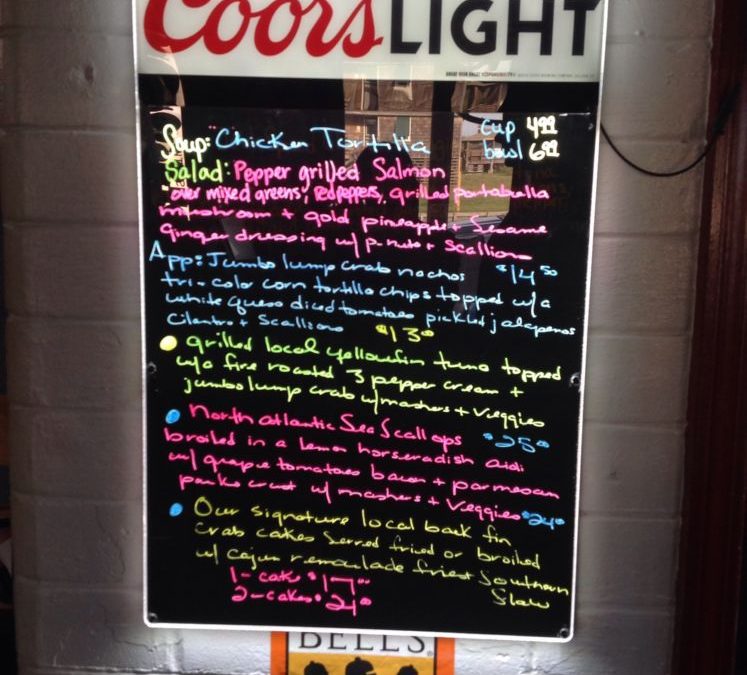 Coors LIGHT
GREAT BEER GREAT RESPONSIBILITY®
Soup: Chicken Tortilla cup 4.99
bowl 6.99
Salad: Pepper grilled Salmon
over mixed greens, red peppers, grilled portabella
mushroom + gold pineapple + Sesame
Ginger dressing w/ p-nuts + Scallions
$14.50
App: Jumbo lump crab nachos
tri-color corn tortilla chips topped w/a
white queso diced tomatoes pickled jalapenos
Cilantro + Scallions $13.00
grilled local yellowfin tuna topped
w/a fire roasted 3 pepper cream +
jumbo lump crab w/mashers + Veggies
$25.00
North atlantic Sea Scallops
broiled in a lemon horseradish aioli
w/ grape tomatoes bacon + parmesan
panko crust w/ mashers + Veggies $24.00
Our signature local back fin
Crab cakes Served fried or broiled
w/ Cajun remoulade fries + Southern
Slaw
1-cake $17.00
2-cakes $24.00
BELL'S